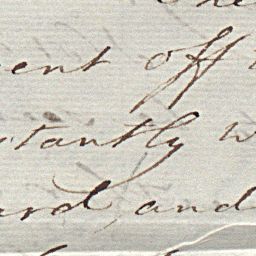 ent off
tantly w
ard, and